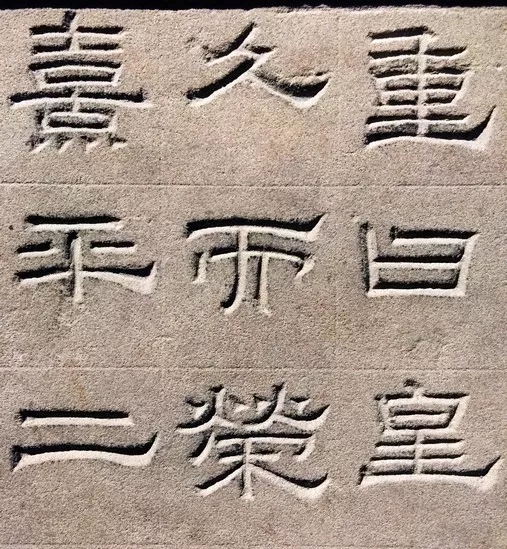 重曰皇
久而榮
熹平二